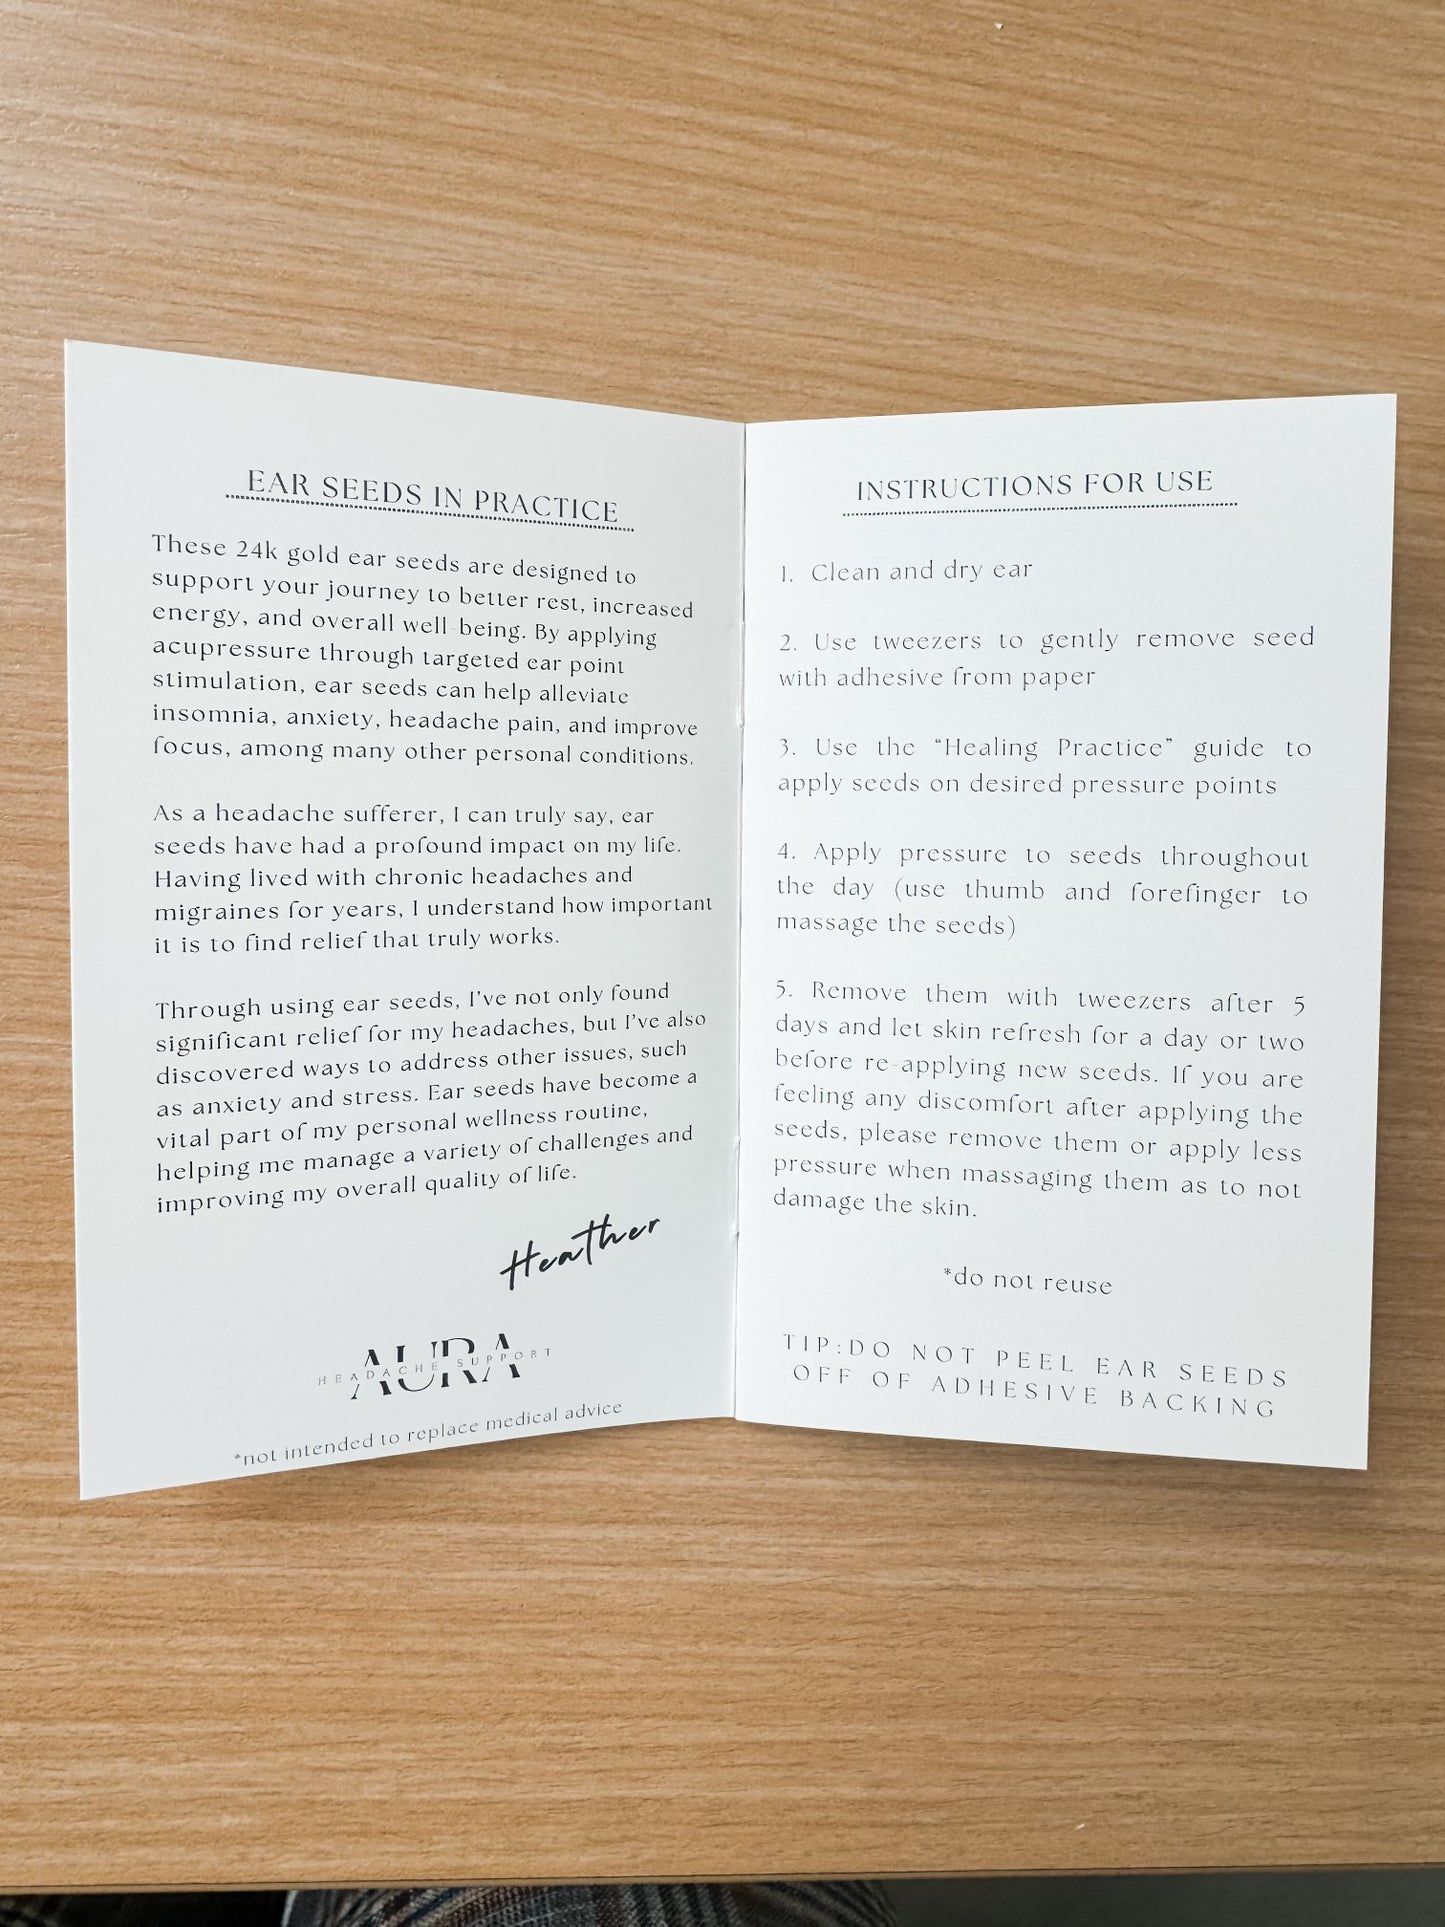 EAR SEEDS IN PRACTICE
These 24k gold ear seeds are designed to
support your journey to better rest, increased
energy, and overall well-being. By applying
acupressure through targeted ear point
stimulation, ear seeds can help alleviate
insomnia, anxiety, headache pain, and improve
focus, among many other personal conditions.
As a headache sufferer, I can truly say, ear
seeds have had a profound impact on my life.
Having lived with chronic headaches and
migraines for years, I understand how important
it is to find relief that truly works.
Through using ear seeds, I've not only found
significant relief for my headaches, but I've also
discovered ways to address other issues, such
as anxiety and stress. Ear seeds have become a
vital part of my personal wellness routine,
helping me manage a variety of challenges and
improving my overall quality of life.
Heather
AURA
HEADACHE SUPPORT
*not intended to replace medical advice
INSTRUCTIONS FOR USE
1. Clean and dry ear
2. Use tweezers to gently remove seed
with adhesive from paper
3. Use the "Healing Practice" guide to
apply seeds on desired pressure points
4. Apply pressure to seeds throughout
the day (use thumb and forefinger to
massage the seeds)
5. Remove them with tweezers after 5
days and let skin refresh for a day or two
before re-applying new seeds. If you are
feeling any discomfort after applying the
seeds, please remove them or apply less
pressure when massaging them as to not
damage the skin.
*do not reuse
TIP:DO NOT PEEL EAR SEEDS
OFF OF ADHESIVE BACKING